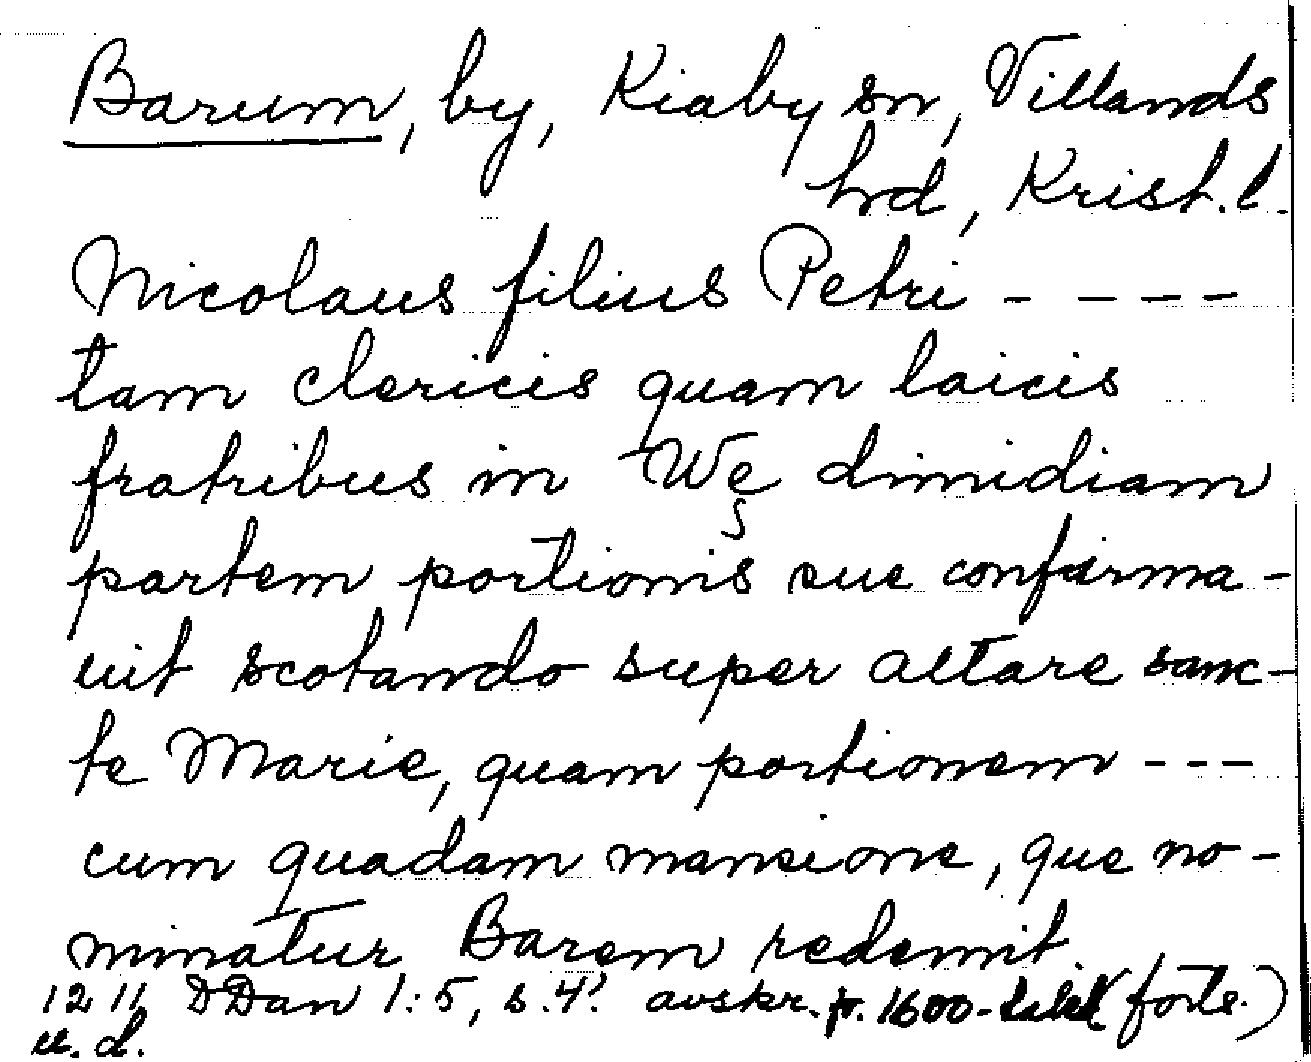 Barum, by, Kiaby sn, Villands
hrd, Krist. l.
Nicolaus filius Petri - - - -
tam clericis quam laicis
fratribus in Wę dimidiam
partem portionis sue confirma-
uit scotando super altare sanc-
te Marie, quam portionem - - -
cum quadam mansione, que no-
minatur Barem redemit.
1211 DDan 1:5, s. 4? avskr. fr. 1600-talet (forts.)
u. d.